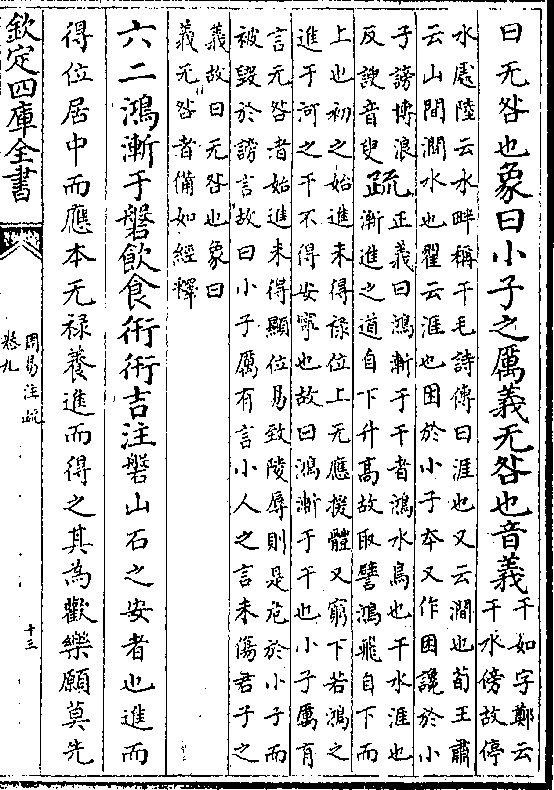 曰无咎也象曰小子之厲義无咎也音義干如字鄭云
干水傍故停
水處陸云水畔稱干毛詩傳曰涯也又云澗也荀王肅
云山間澗水也翟云涯也困於小子本又作困讒於小
子謗博浪
反諛音臾疏正義曰鴻漸于干者鴻水鳥也干水涯也
漸進之道自下升高故取譬鴻飛自下而
上也初之始進未得祿位上无應援體又窮下若鴻之
進于河之干不得安寧也故曰鴻漸于干也小子厲有
言无咎者始進未得顯位易致陵辱則是危於小子而
被毀於謗言故曰小子厲有言小人之言未傷君子之
義故曰无咎也象曰
義无咎者備如經釋
六二鴻漸于磐飲食衎衎吉注磐山石之安者也進而
得位居中而應本无祿養進而得之其為歡樂願莫先
欽定四庫全書
周易注疏
卷九
十三